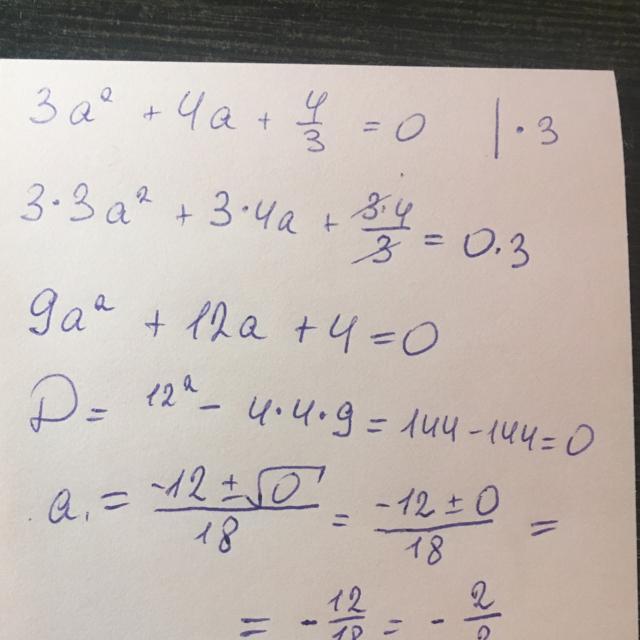 3a² + 4a + 4/3 = 0 | · 3
3·3a² + 3·4a + 3·4/3 = 0·3
9a² + 12a + 4 = 0
D = 12² − 4·4·9 = 144 − 144 = 0
a₁ = (-12 ± √0)/18 = (-12 ± 0)/18 =
= - 12/18 = - 2/